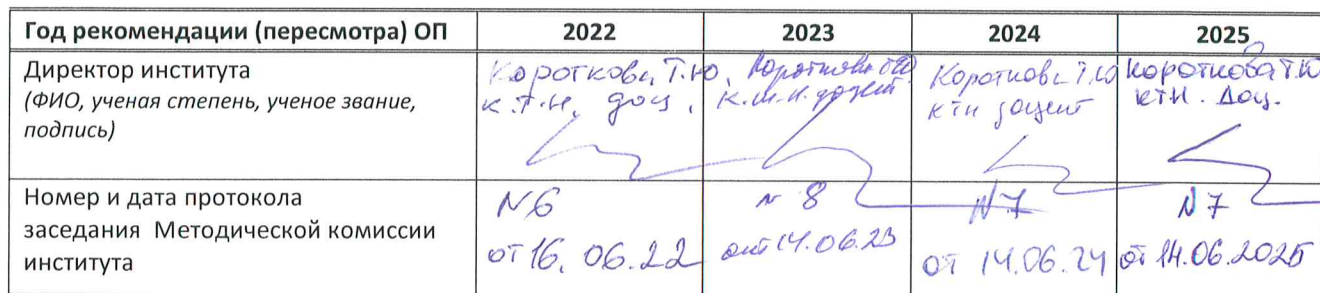 Год рекомендации (пересмотра) ОП 2022 2023 2024 2025
Директор института
(ФИО, ученая степень, ученое звание,
подпись)
Короткова Т.Ю,
к.т.н, доц,
Короткова ТЮ
к.т.н. доцент
Короткова Т.Ю
ктн доцент
Короткова Т.Ю
ктн. Доц.
Номер и дата протокола
заседания Методической комиссии
института
№6
от 16. 06.22
№ 8
от 14.06.23
№7
от 14.06.24
№7
от 14.06.2025